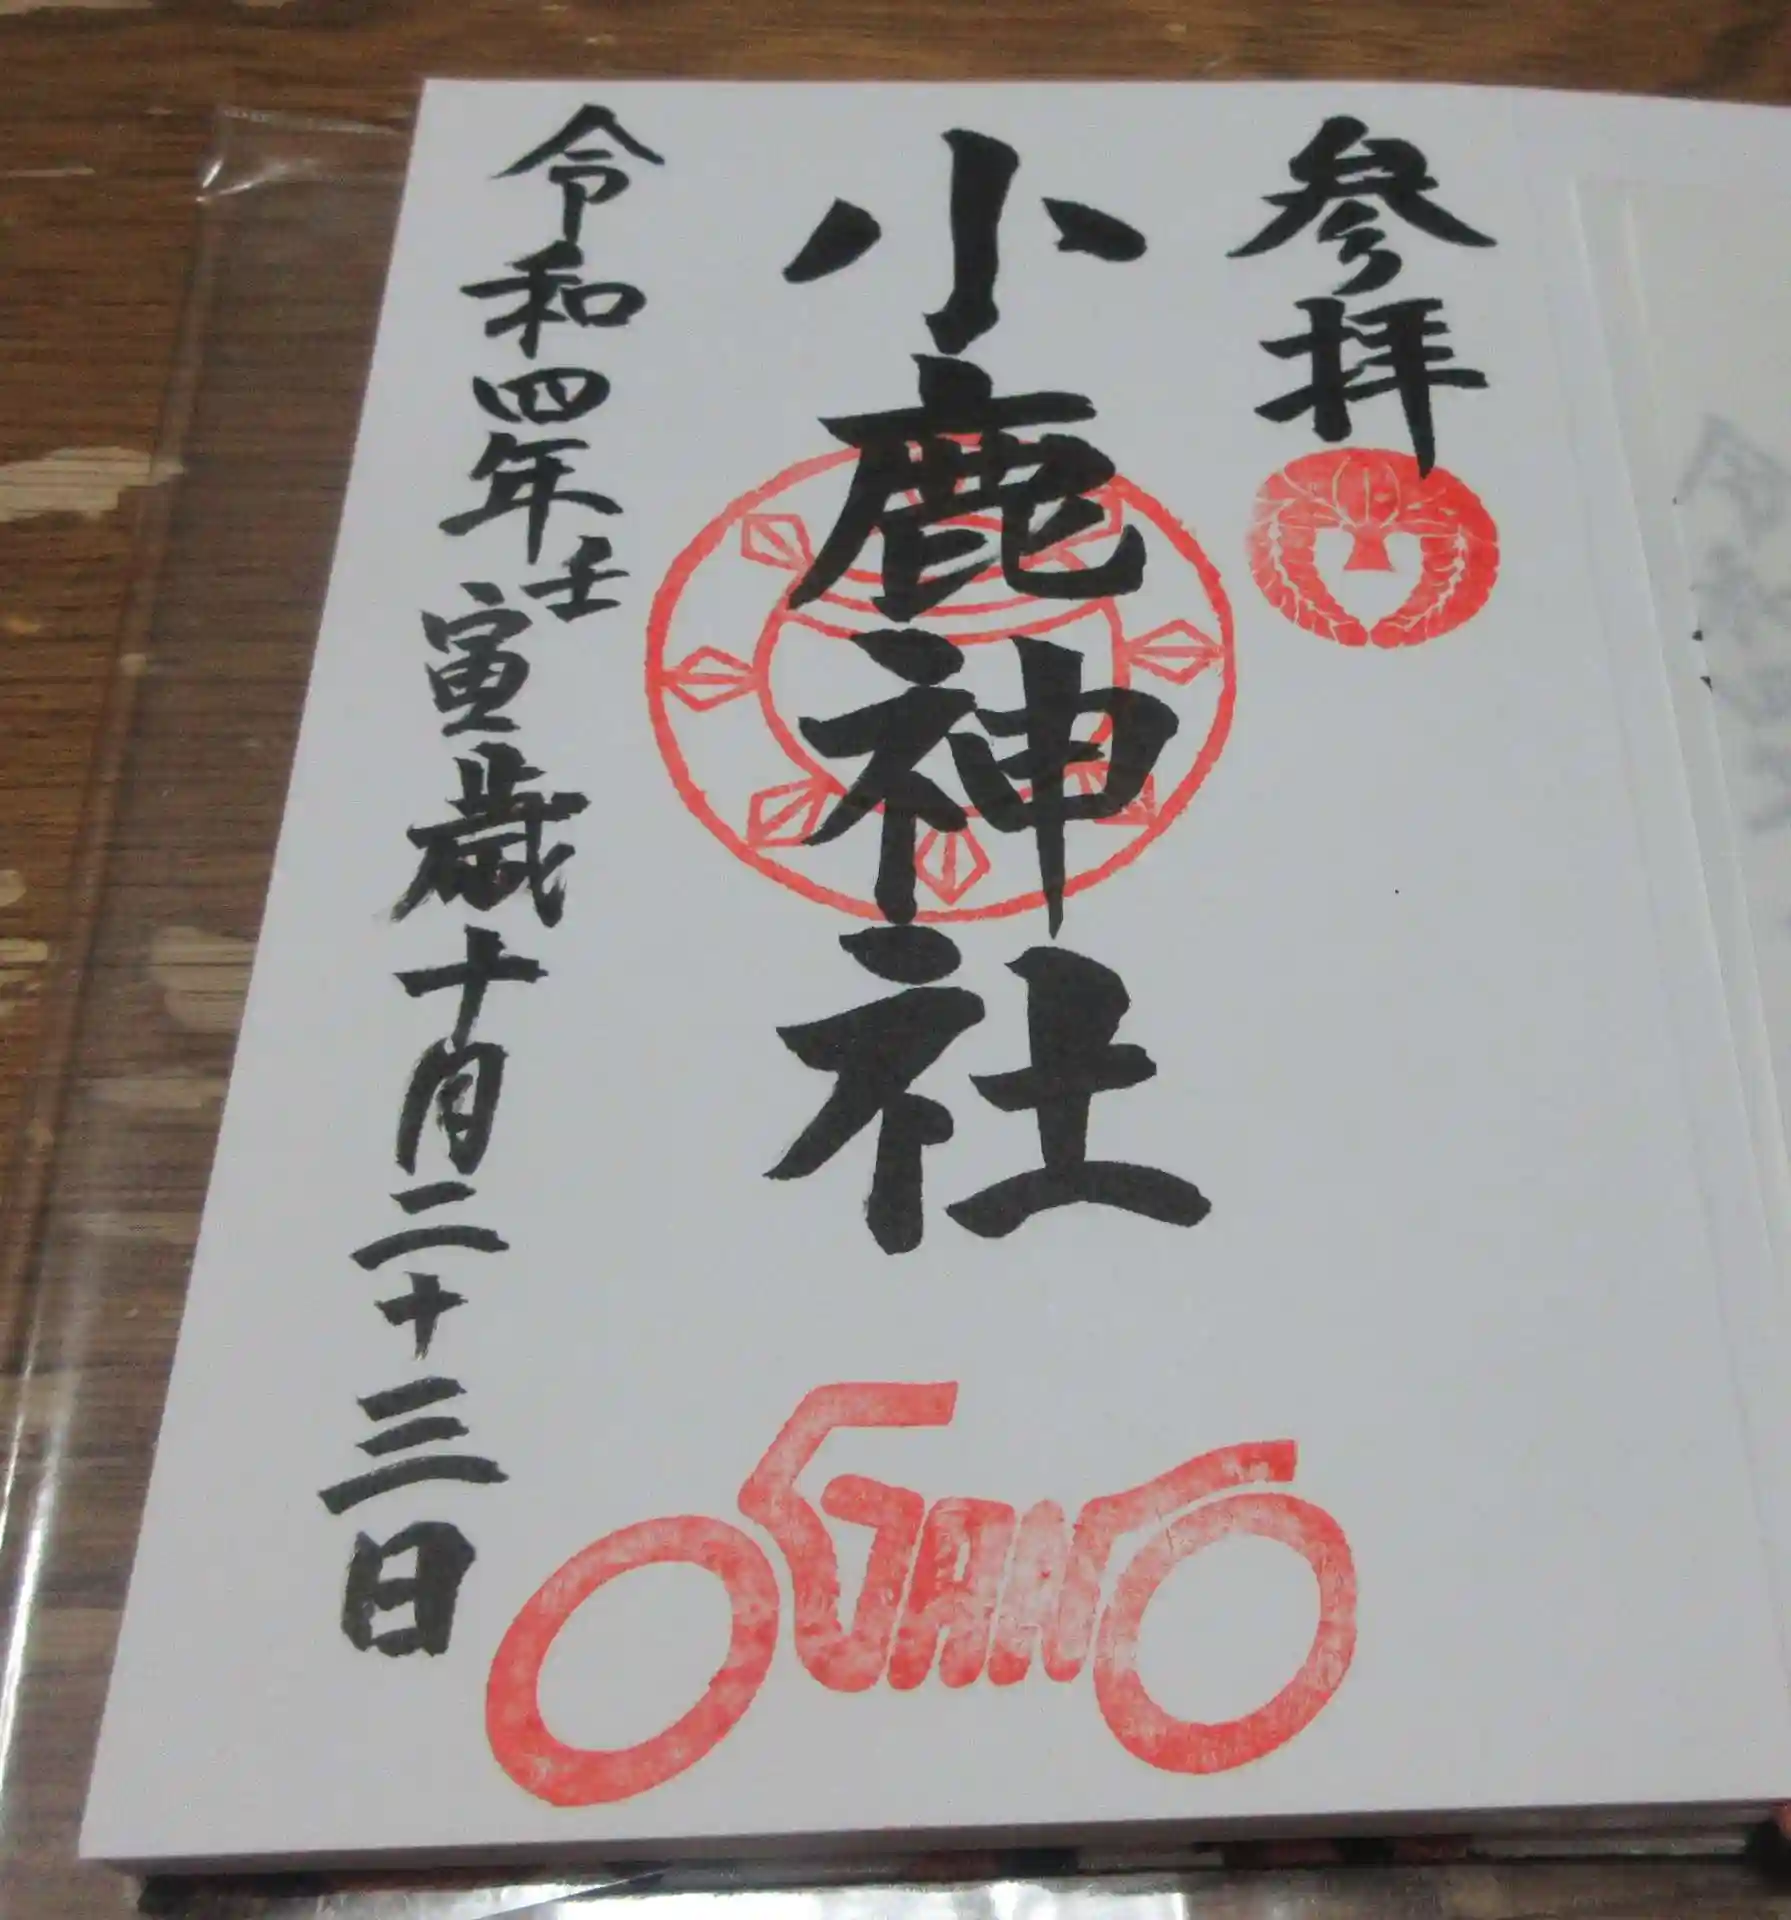 参拝
小鹿神社
令和四年壬寅歳十月二十三日
OGANO